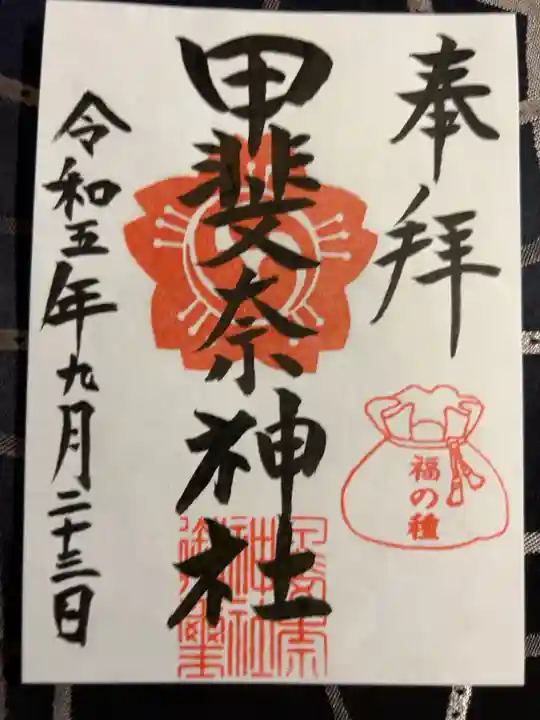 奉拝
福の種
甲斐奈神社
令和五年九月二十三日